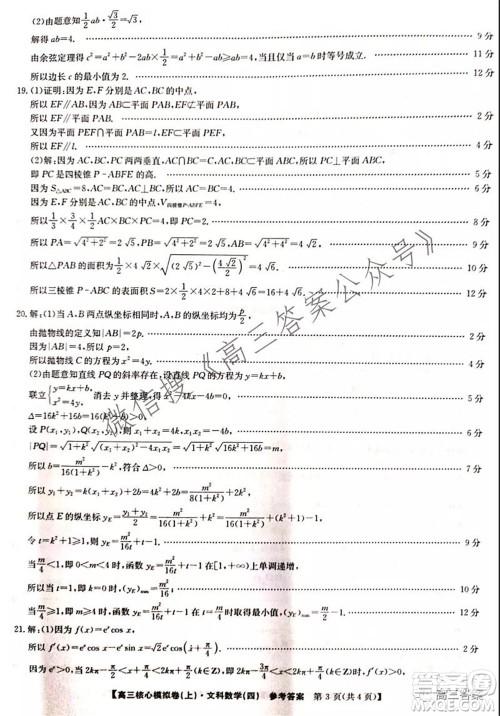 (2)由题意知½ab·√3/2=√3.
解得ab=4. 9分
由余弦定理得c²=a²+b²-2ab×½=a²+b²-ab≥2ab-ab=ab=4,当且仅当a=b=2时等号成立.
所以边长c的最小值为2. 12分
19.(1)证明:因为E,F分别是AC,BC的中点,
所以EF∥AB,因为AB⊂平面PAB,EF⊄平面PAB,
所以EF∥平面PAB. 2分
又因为平面PEF∩平面PAB=l,EF⊂平面PEF,
所以EF∥l. 5分
(2)解:因为AC,BC,PC两两垂直,AC∩BC=C,所以PC⊥平面ABC,
所以PC是四棱锥P-ABFE的高. 6分
因为S△ABC=8,AC=BC,AC⊥BC,所以AC=4. 7分
因为E,F分别是AC,BC的中点,V四棱锥P-ABFE=4,
所以⅓×¾×½×AC×BC×PC=4,所以PC=2. 8分
所以PA=√(4²+2²)=2√5,PB=√(4²+2²)=2√5,
所以△PAB的面积为½×4√2×√((2√5)²-(4√2/2)²)=4√6,
所以三棱锥P-ABC的表面积S=½×4×2+½×4×2+8+4√6=16+4√6. 12分
20.解:(1)当A,B两点纵坐标相同时,A,B的纵坐标均为p/2,
由抛物线的定义知|AB|=2p,因为|AB|=4,所以p=2. 2分
所以抛物线C的方程为x²=4y. 4分
(2)由题意知直线PQ的斜率存在,设直线PQ的方程为y=kx+b,
联立{y=kx+b,x²=4y,消去y并整理,得x²-4kx-4b=0,
Δ=16k²+16b=16(k²+b)>0,
设P(x₁,y₁),Q(x₂,y₂),则x₁+x₂=4k,x₁x₂=-4b.
|PQ|=√(1+k²)√((x₁+x₂)²-4x₁x₂)=√(1+k²)√(16k²+16b)=m. 7分
所以b=m²/(16(1+k²))-k²,符合Δ>0,
所以y₁+y₂=k(x₁+x₂)+2b=4k²+2b=m²/(8(1+k²))+2k²,
所以点E的纵坐标为y_E=(y₁+y₂)/2=m²/(16(1+k²))+k². 9分
令t=k²+1≥1,则y_E=m²/(16t)+t-1, 10分
当m/4<1,即0<m<4时,y_E=m²/(16t)+t-1在[1,+∞)上单调递增,
所以当t=1时,(y_E)min=m²/16;
当m/4≥1,即m≥4时,(y_E)min=(m-2)/2. 12分
21.解:(1)因为f(x)=eˣcos x,
所以f′(x)=eˣcos x-eˣsin x=√2eˣcos(x+π/4), 2分
【高三核心模拟卷(上)·文科数学(四) 参考答案 第3页(共4页)】
微信搜《高三答案公众号》
高三答案